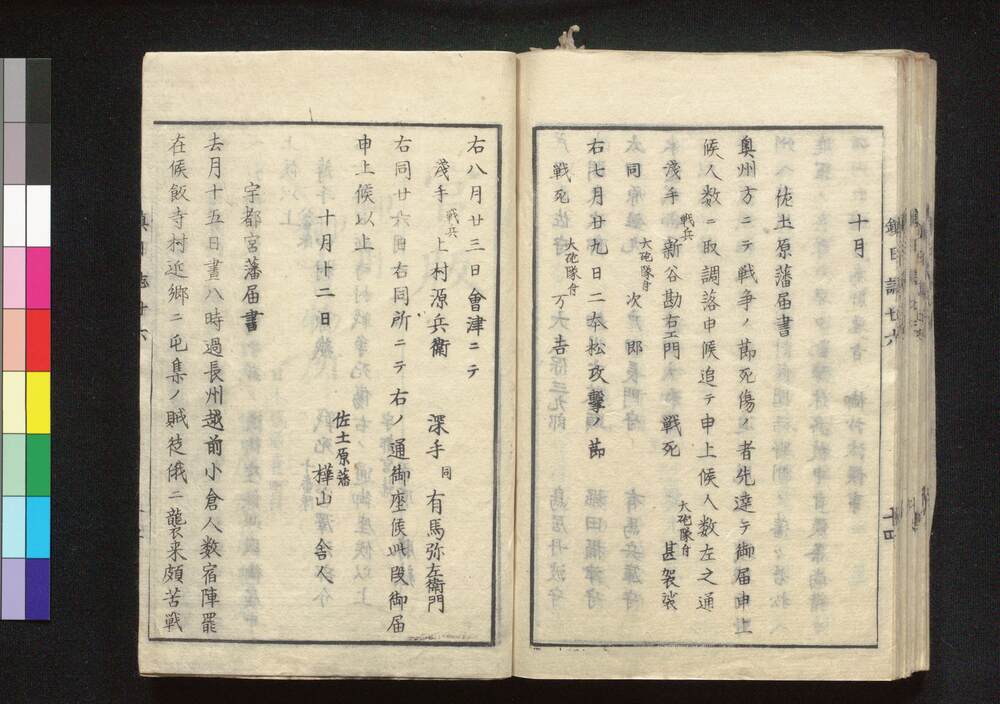 十月
佐土原藩届書
奥州方ニテ戦争ノ節死傷ノ者先達テ御届申上
候人数ニ取調落申候追テ申上候人数左之通
浅手 戦兵 新谷勘右エ門 戦死 大砲隊付 甚袈裟
同 大砲隊付 次郎
右七月廿九日二本松攻撃ノ節
戦死 大砲隊付 万大吉
右八月廿三日會津ニテ
浅手 戦兵 上村源兵衛 深手 同 有馬弥左衛門
右同廿六日右同所ニテ右ノ通御座候此段御届
申上候以上
十月十二日 佐土原藩 樺山舎人
宇都宮藩届書
去月十五日晝八時過長州越前小倉人数宿陣罷
在候飯寺村近郷ニ屯集ノ賊徒俄ニ襲来頗苦戦